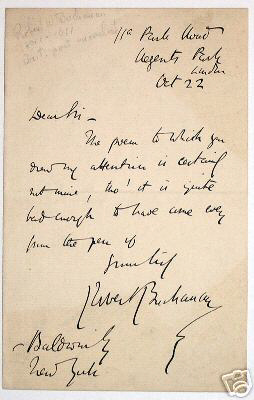 Robert W. Buchanan
11a Park Road
Regents Park
London
Oct 22
Dear Sir –
The poem to which you
drew my attention is certainly
not mine, tho' it is quite
bad enough to have come
from the pen of
Yours truly
Robert Buchanan
– Baldwin
New York